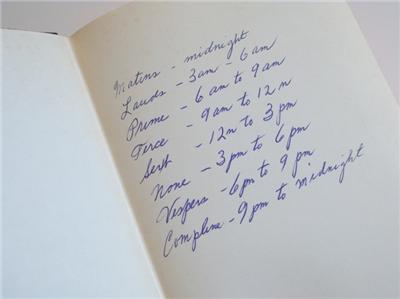 Matins - midnight
Lauds - 3am - 6am
Prime - 6am to 9am
Terce - 9am to 12n
Sext - 12n to 3pm
None - 3pm to 6pm
Vespers - 6pm to 9pm
Compline - 9pm to midnight